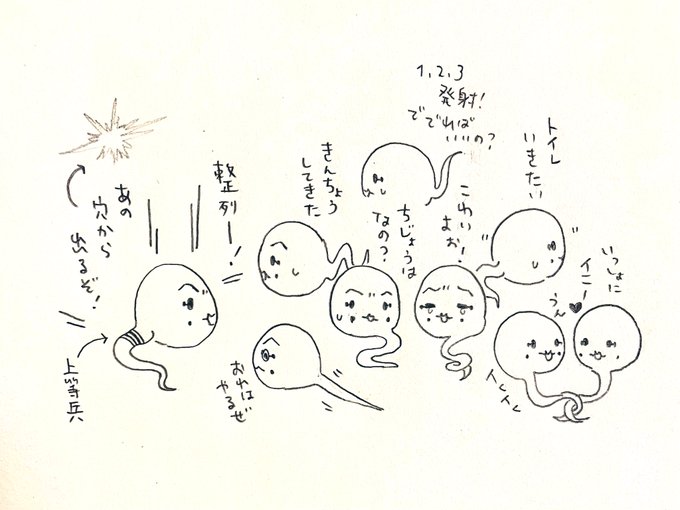 1,2,3
発射!
ででれば
いいの?
トイレ
いきたい
きんちょう
してきた
こわい
よぉ!
ちじょうは
なの?
整列ー!
あの
穴から
出るぞ!
上等兵
おれは
やるぜ
いっしょに
イこー
うん
トントン